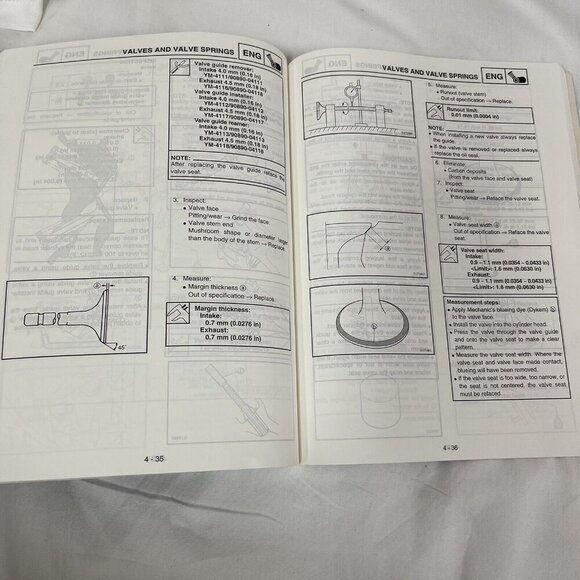 VALVES AND VALVE SPRINGS
ENG
Valve guide remover:
Intake 4.0 mm (0.16 in)
YM-4111/90890-04111
Exhaust 4.5 mm (0.18 in)
YM-4116/90890-04116
Valve guide installer:
Intake 4.0 mm (0.16 in)
YM-4112/90890-04112
Exhaust 4.5 mm (0.18 in)
YM-4117/90890-04117
Valve guide reamer:
Intake 4.0 mm (0.16 in)
YM-4113/90890-04113
Exhaust 4.5 mm (0.18 in)
YM-4118/90890-04118
NOTE:
After replacing the valve guide reface the
valve seat.
3. Inspect:
• Valve face
Pitting/wear → Grind the face.
• Valve stem end
Mushroom shape or diameter larger
than the body of the stem → Replace.
4. Measure:
• Margin thickness ⓐ
Out of specification → Replace.
Margin thickness:
Intake:
0.7 mm (0.0276 in)
Exhaust:
0.7 mm (0.0276 in)
ⓐ
45°
4 - 35
VALVES AND VALVE SPRINGS
ENG
5. Measure:
• Runout (valve stem)
Out of specification → Replace.
Runout limit:
0.01 mm (0.0004 in)
NOTE:
• When installing a new valve always replace
the guide.
• If the valve is removed or replaced always
replace the oil seal.
6. Eliminate:
• Carbon deposits
(from the valve face and valve seat)
7. Inspect:
• Valve seat
Pitting/wear → Reface the valve seat.
8. Measure:
• Valve seat width ⓐ
Out of specification → Reface the valve
seat.
Valve seat width:
Intake:
0.9 ~ 1.1 mm (0.0354 ~ 0.0433 in)
<Limit>: 1.6 mm (0.0630 in)
Exhaust:
0.9 ~ 1.1 mm (0.0354 ~ 0.0433 in)
<Limit>: 1.6 mm (0.0630 in)
Measurement steps:
• Apply Mechanic's blueing dye (Dykem) ⓑ
to the valve face.
• Install the valve into the cylinder head.
• Press the valve through the valve guide
and onto the valve seat to make a clear
pattern.
• Measure the valve seat width. Where the
valve seat and valve face made contact,
blueing will have been removed.
• If the valve seat is too wide, too narrow, or
the seat is not centered, the valve seat
must be refaced.
4 - 36